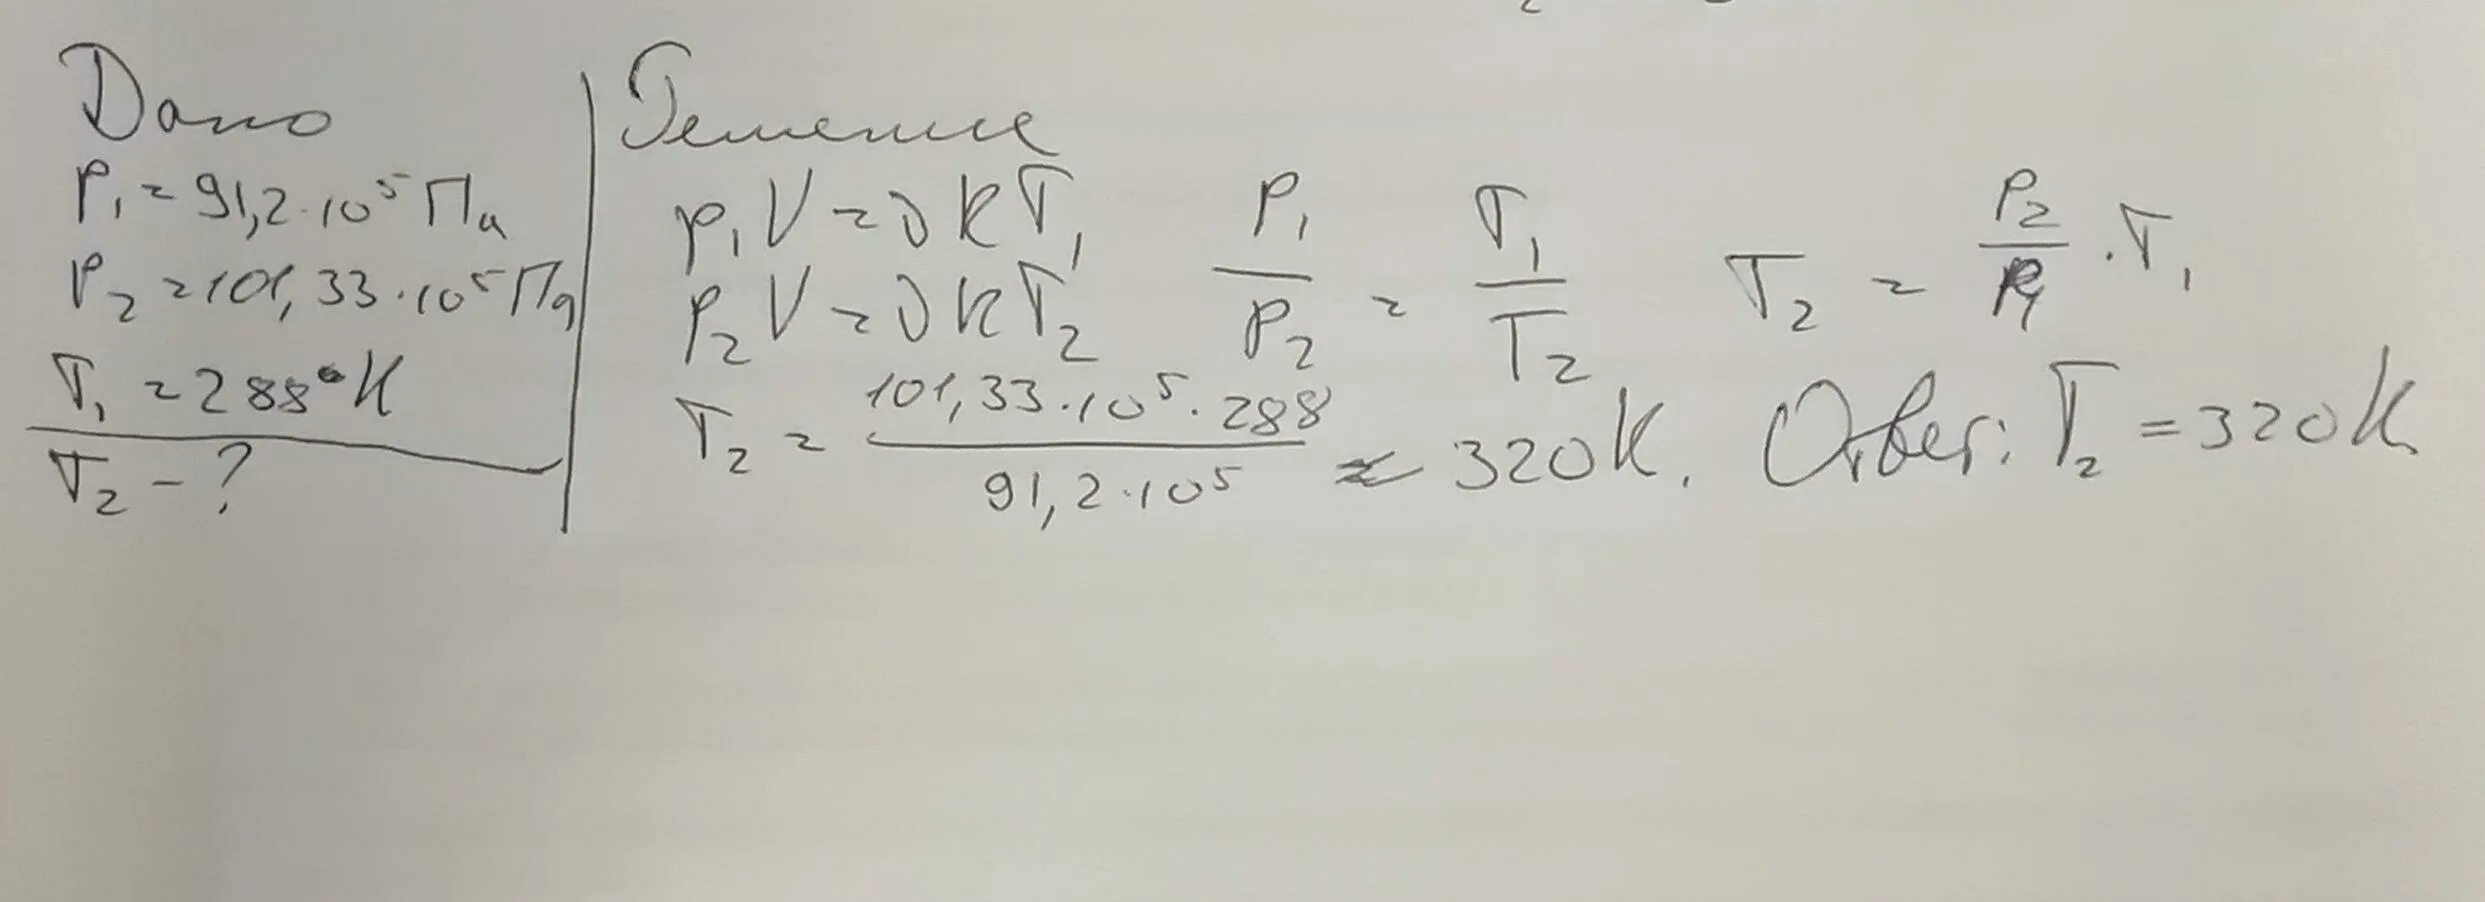 Дано
P₁ = 91,2·10⁵ Па
P₂ = 101,33·10⁵ Па
T₁ = 288°К
T₂ - ?
Решение
p₁V = νKT₁
p₂V = νKT₂
P₁/P₂ = T₁/T₂
T₂ = P₂/P₁ · T₁
T₂ = 101,33·10⁵·288 / 91,2·10⁵ ≈ 320К.
Ответ: T₂ = 320К